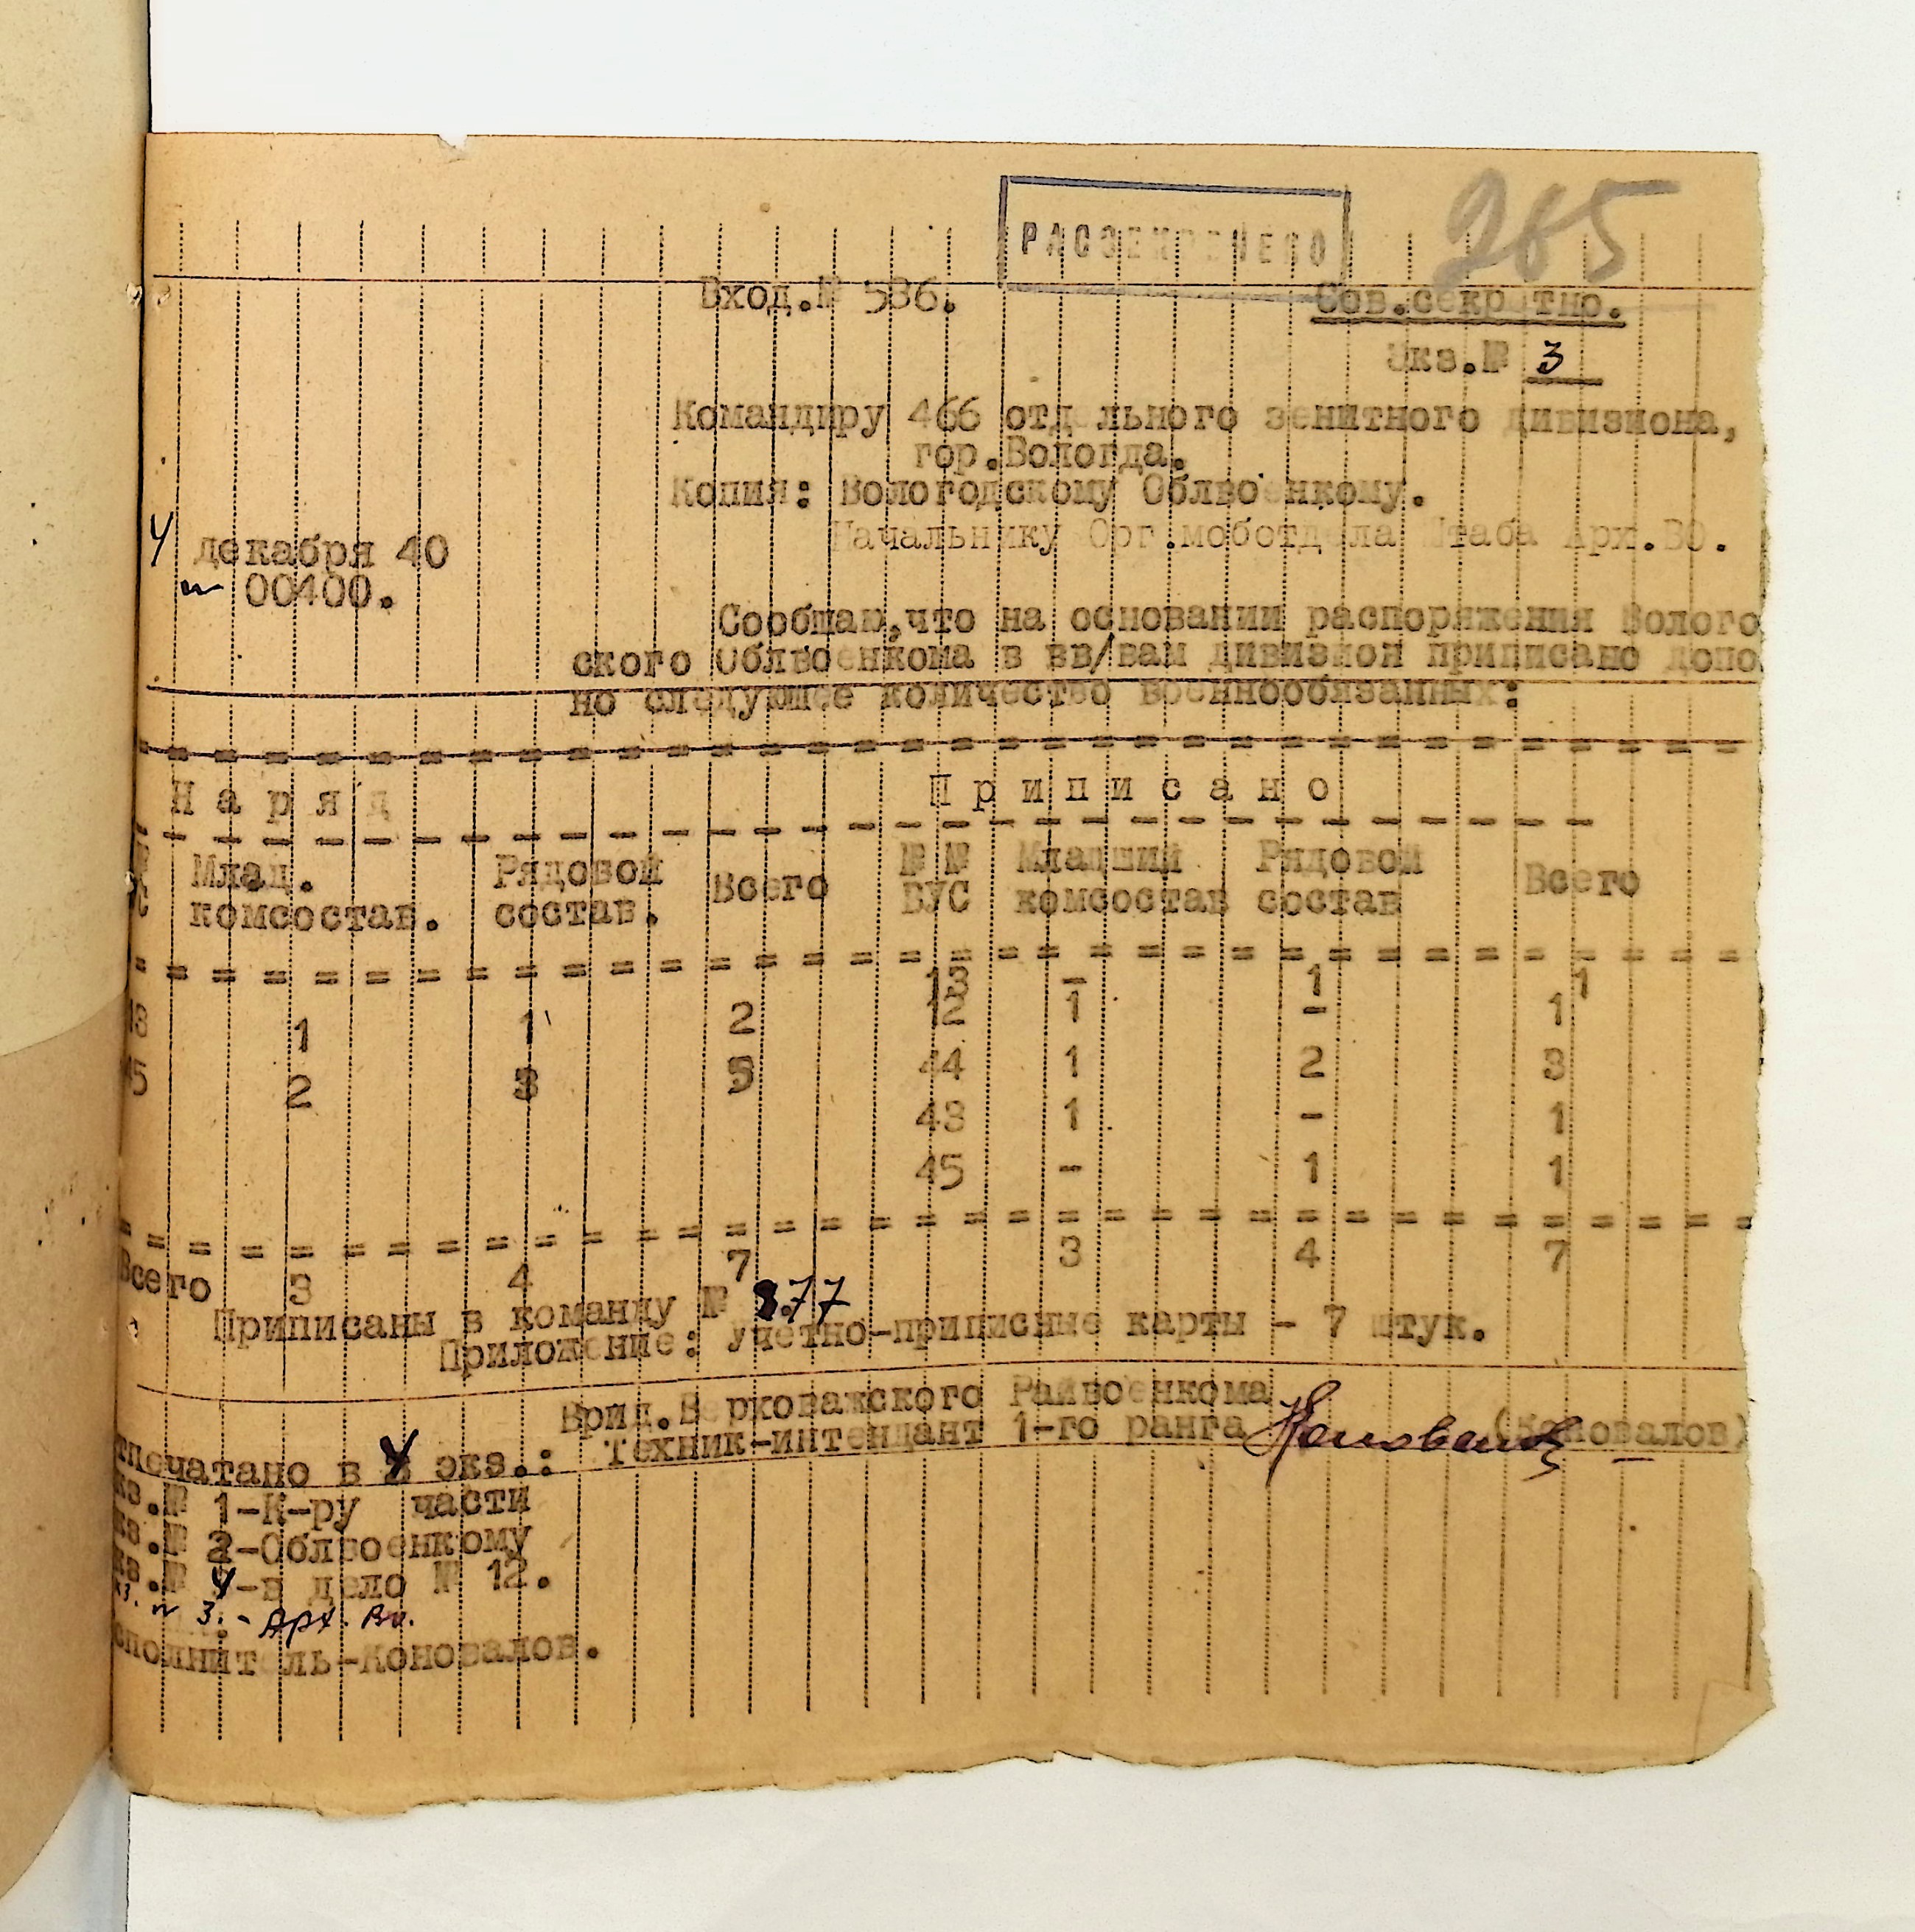 265
РАССЕКРЕЧЕНО
Вход.№ 536.
Сов.секретно.
Экз.№ 3
Командиру 466 отдельного зенитного дивизиона,
гор.Вологда.
Копия: Вологодскому Облвоенкому.
Начальнику Орг.моботдела Штаба Арх.ВО.
4 декабря 40
№ 00400.
Сообщаю,что на основании распоряжения Волого
ского Облвоенкома в вв/ваш дивизион приписано допо
но следующее количество военнообязанных:
Наряд Приписано
№ Млад. Рядовой Всего №№ Младший Рядовой Всего
УС комсостав. состав. ВУС комсостав состав
13 - 1 1
13 1 1 2 12 1 - 1
45 2 3 5 44 1 2 3
43 1 - 1
45 - 1 1
Всего 3 4 7 3 4 7
Приписаны в команду № 8.77
Приложение: Учетно-приписные карты - 7 штук.
Врид.Верховажского Райвоенкома
Техник-интендант 1-го ранга Коновалов (Коновалов)
тпечатано в 4 экз.:
кз.№ 1-К-ру части
кз.№ 2-Облвоенкому
кз.№ 4-в дело № 12.
кз. № 3. - Арх. Во.
сполнитель-Коновалов.